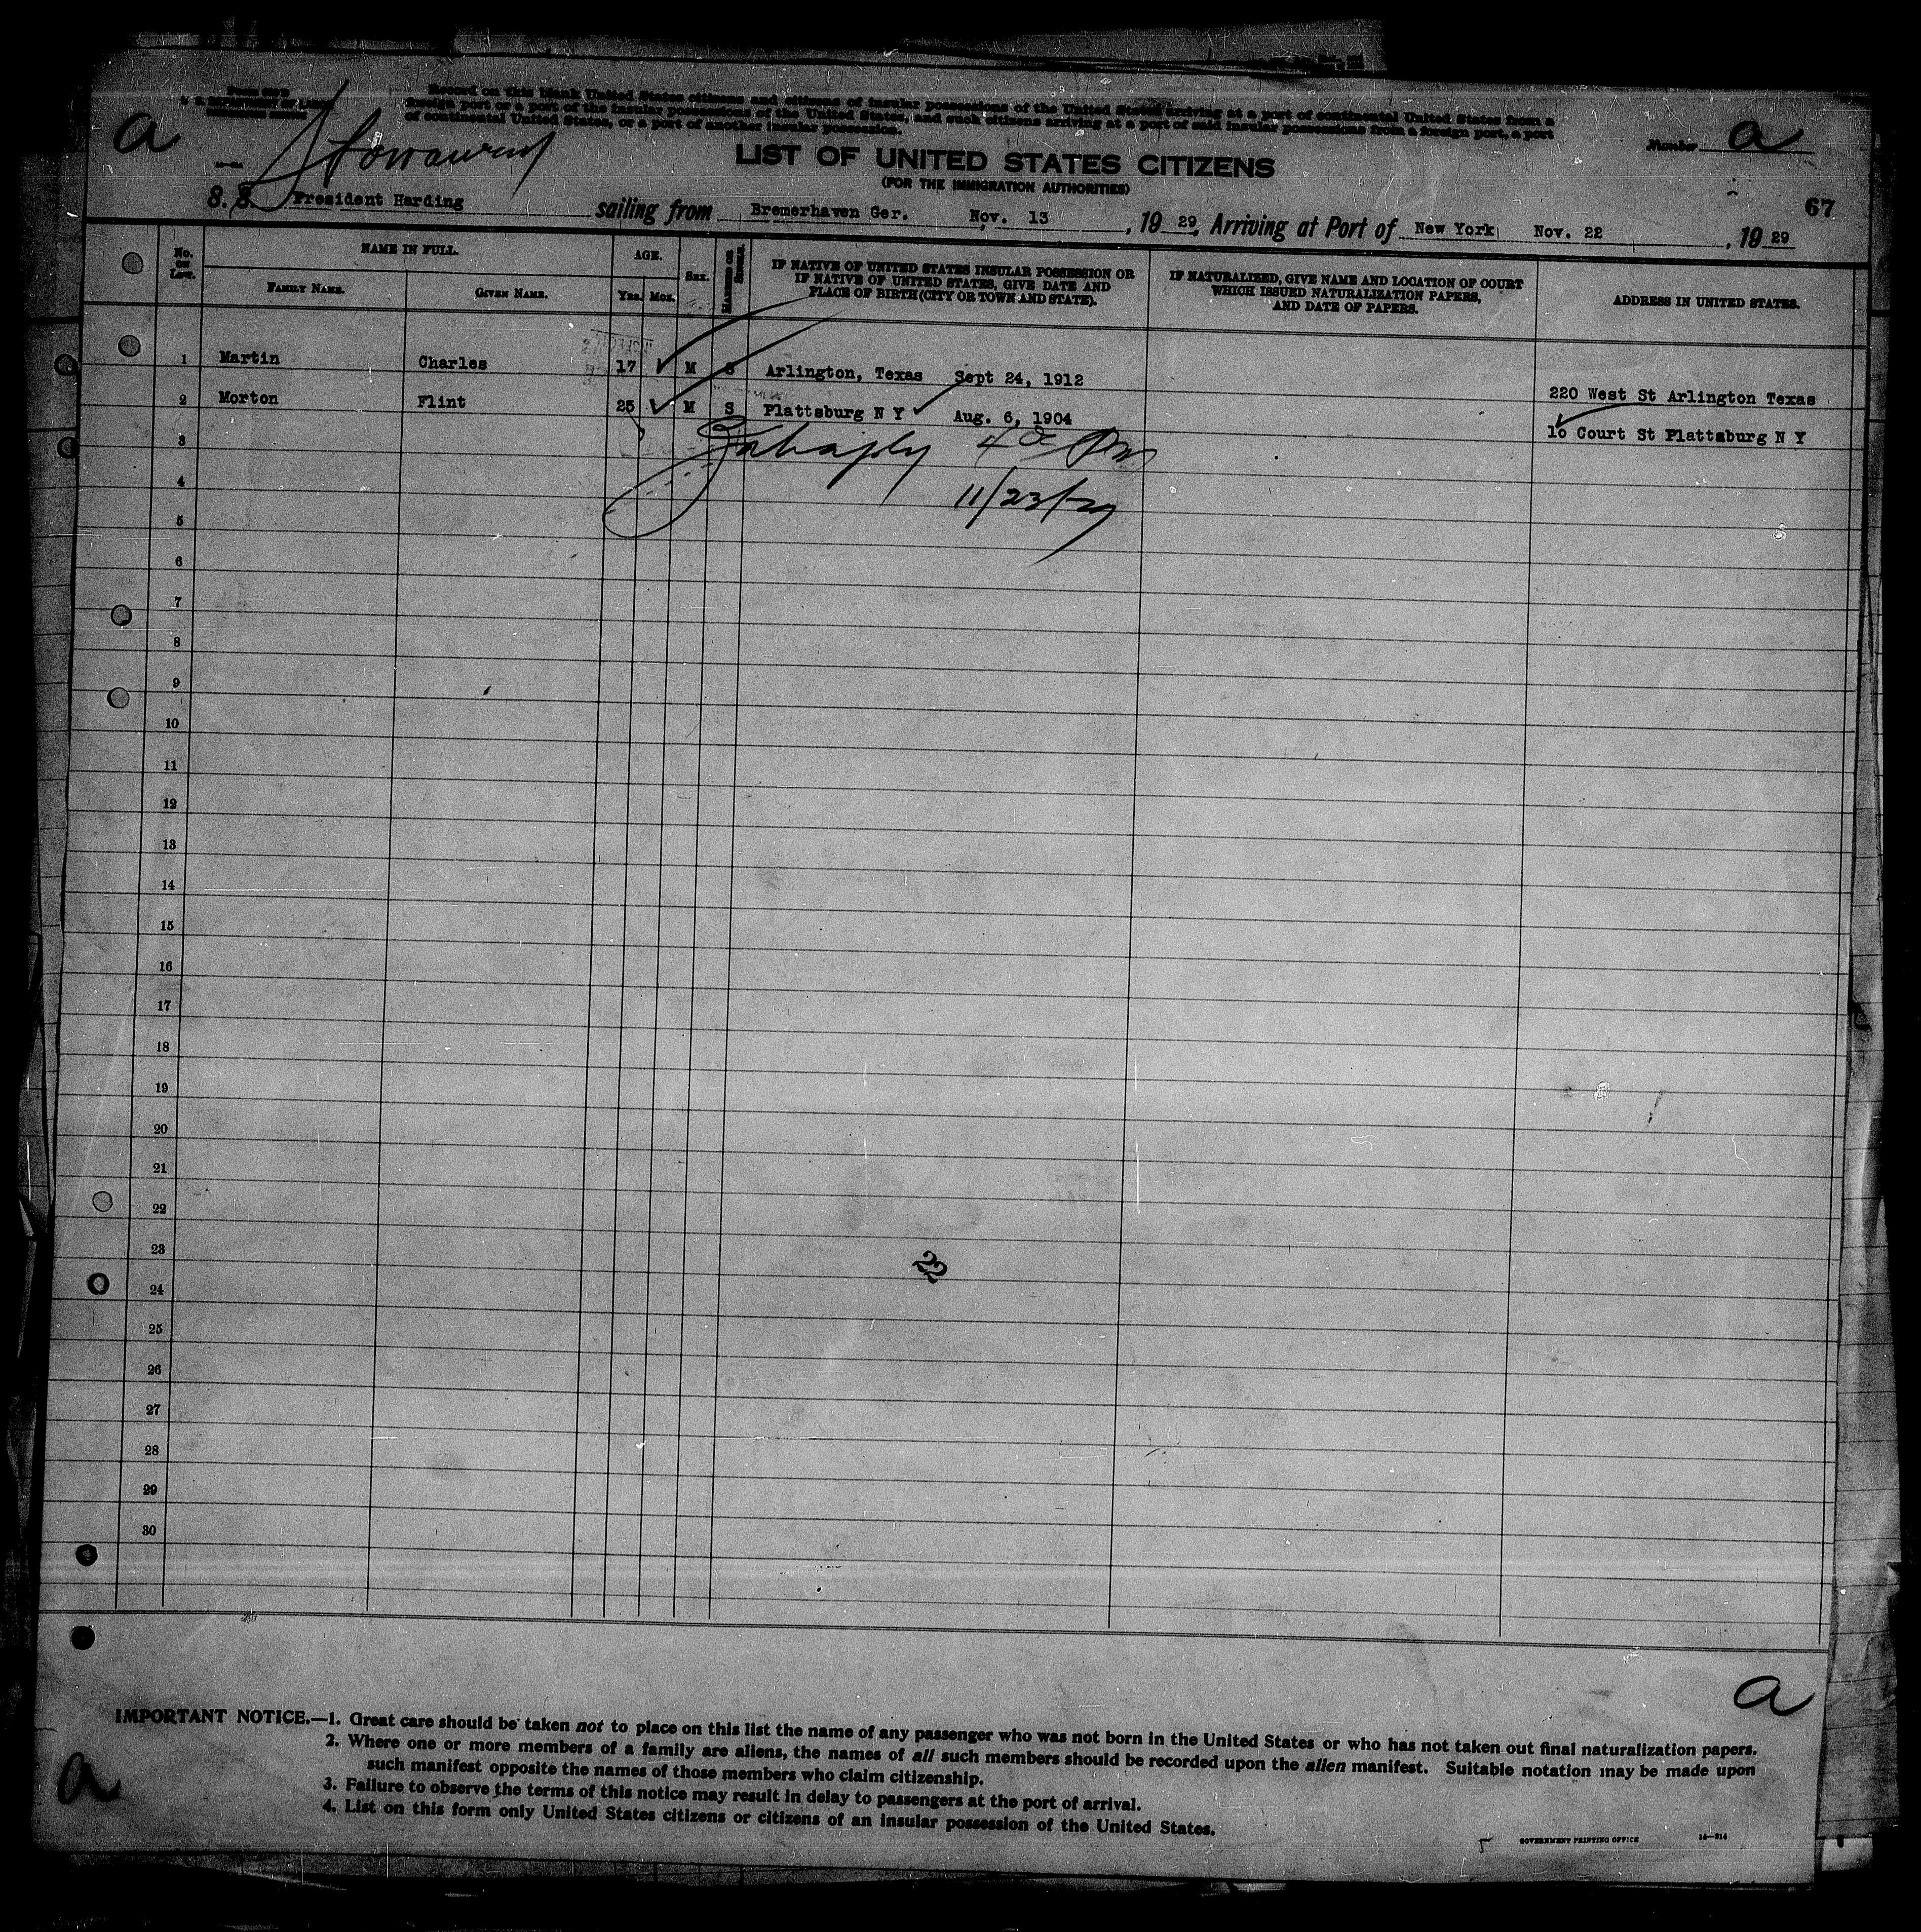 a
Record on this blank United States citizens and citizens of insular possessions of the United States arriving at a port of continental United States from a
foreign port or a port of the insular possessions of the United States, and such citizens arriving at a port of said insular possessions from a foreign port, a port
of continental United States, or a port of another insular possession.
Number a
LIST OF UNITED STATES CITIZENS
(FOR THE IMMIGRATION AUTHORITIES)
67
S. S. President Harding sailing from Bremerhaven Ger. Nov. 13, 1929, Arriving at Port of New York Nov. 22, 1929
No. on List. NAME IN FULL. AGE. Sex. Married or Single. IF NATIVE OF UNITED STATES INSULAR POSSESSION OR IF NATIVE OF UNITED STATES, GIVE DATE AND PLACE OF BIRTH (CITY OR TOWN AND STATE). IF NATURALIZED, GIVE NAME AND LOCATION OF COURT WHICH ISSUED NATURALIZATION PAPERS, AND DATE OF PAPERS. ADDRESS IN UNITED STATES.
Family Name. Given Name. Yrs. Mos.
1 Martin Charles 17 M S Arlington, Texas Sept 24, 1912 220 West St Arlington Texas
2 Morton Flint 25 M S Plattsburg N Y Aug. 6, 1904 10 Court St Plattsburg N Y
3
4 11/23/29
5
6
7
8
9
10
11
12
13
14
15
16
17
18
19
20
21
22
23
22
24
25
26
27
28
29
30
a
IMPORTANT NOTICE.—1. Great care should be taken not to place on this list the name of any passenger who was not born in the United States or who has not taken out final naturalization papers.
2. Where one or more members of a family are aliens, the names of all such members should be recorded upon the alien manifest. Suitable notation may be made upon
such manifest opposite the names of those members who claim citizenship.
3. Failure to observe the terms of this notice may result in delay to passengers at the port of arrival.
4. List on this form only United States citizens or citizens of an insular possession of the United States.
a
5 GOVERNMENT PRINTING OFFICE 14—214